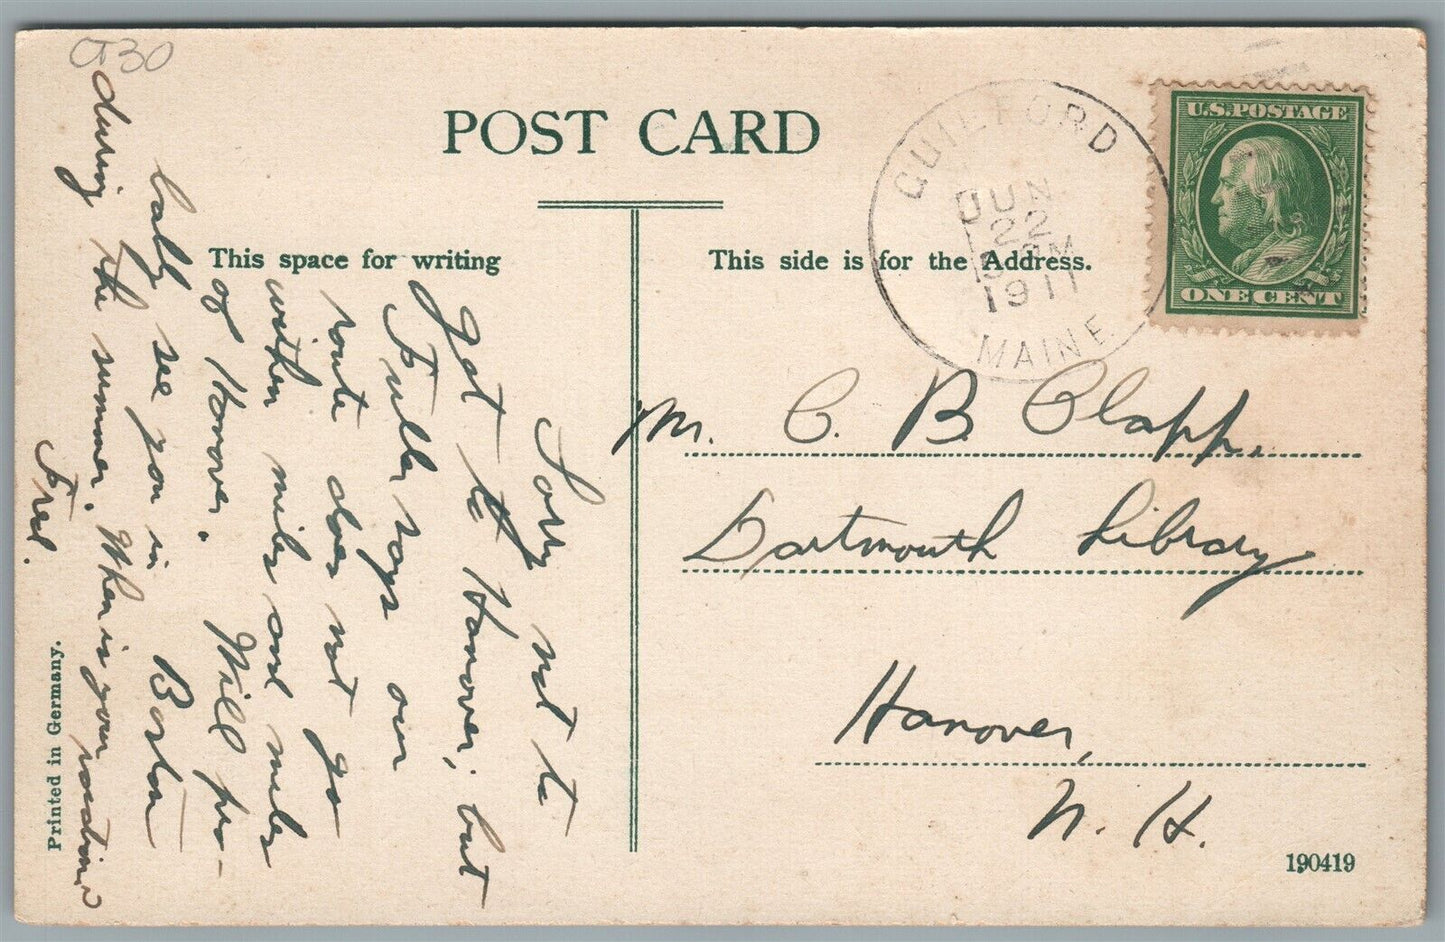 CT30
POST CARD
This space for writing
This side is for the Address.
GUILFORD
JUN
22
M
1911
MAINE
U.S. POSTAGE
ONE CENT
Sorry not to
get to Hanover, but
Fuller says our
route does not go
within miles and miles
of Hanover. Will pro-
bably see you in Boston
during the summer. When is your vacation?
Fred.
Mr. C. B. Clapp,
Dartmouth Library
Hanover,
N. H.
Printed in Germany.
190419